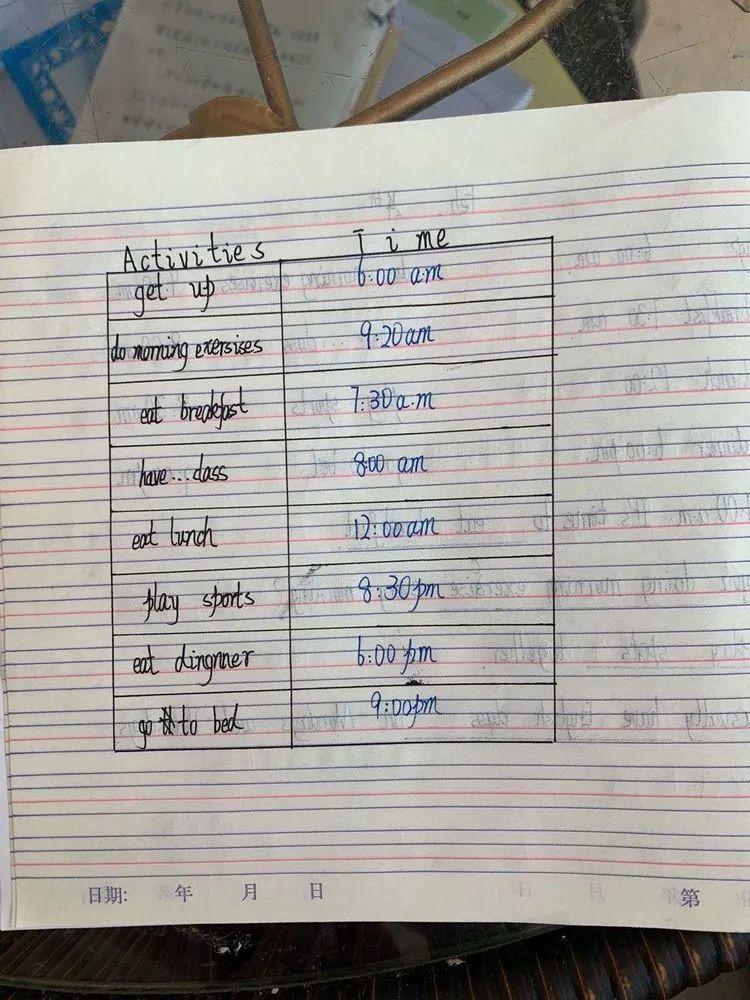 Activities Time
get up 6:00 am
do morning exersises 9:20am
eat breakfast 7:30a.m
have...class 8:00 am
eat lunch 12:00am
play sports 8:30pm
eat dingnner 6:00 pm
go to bed 9:00pm
日期: 年 月 日 第